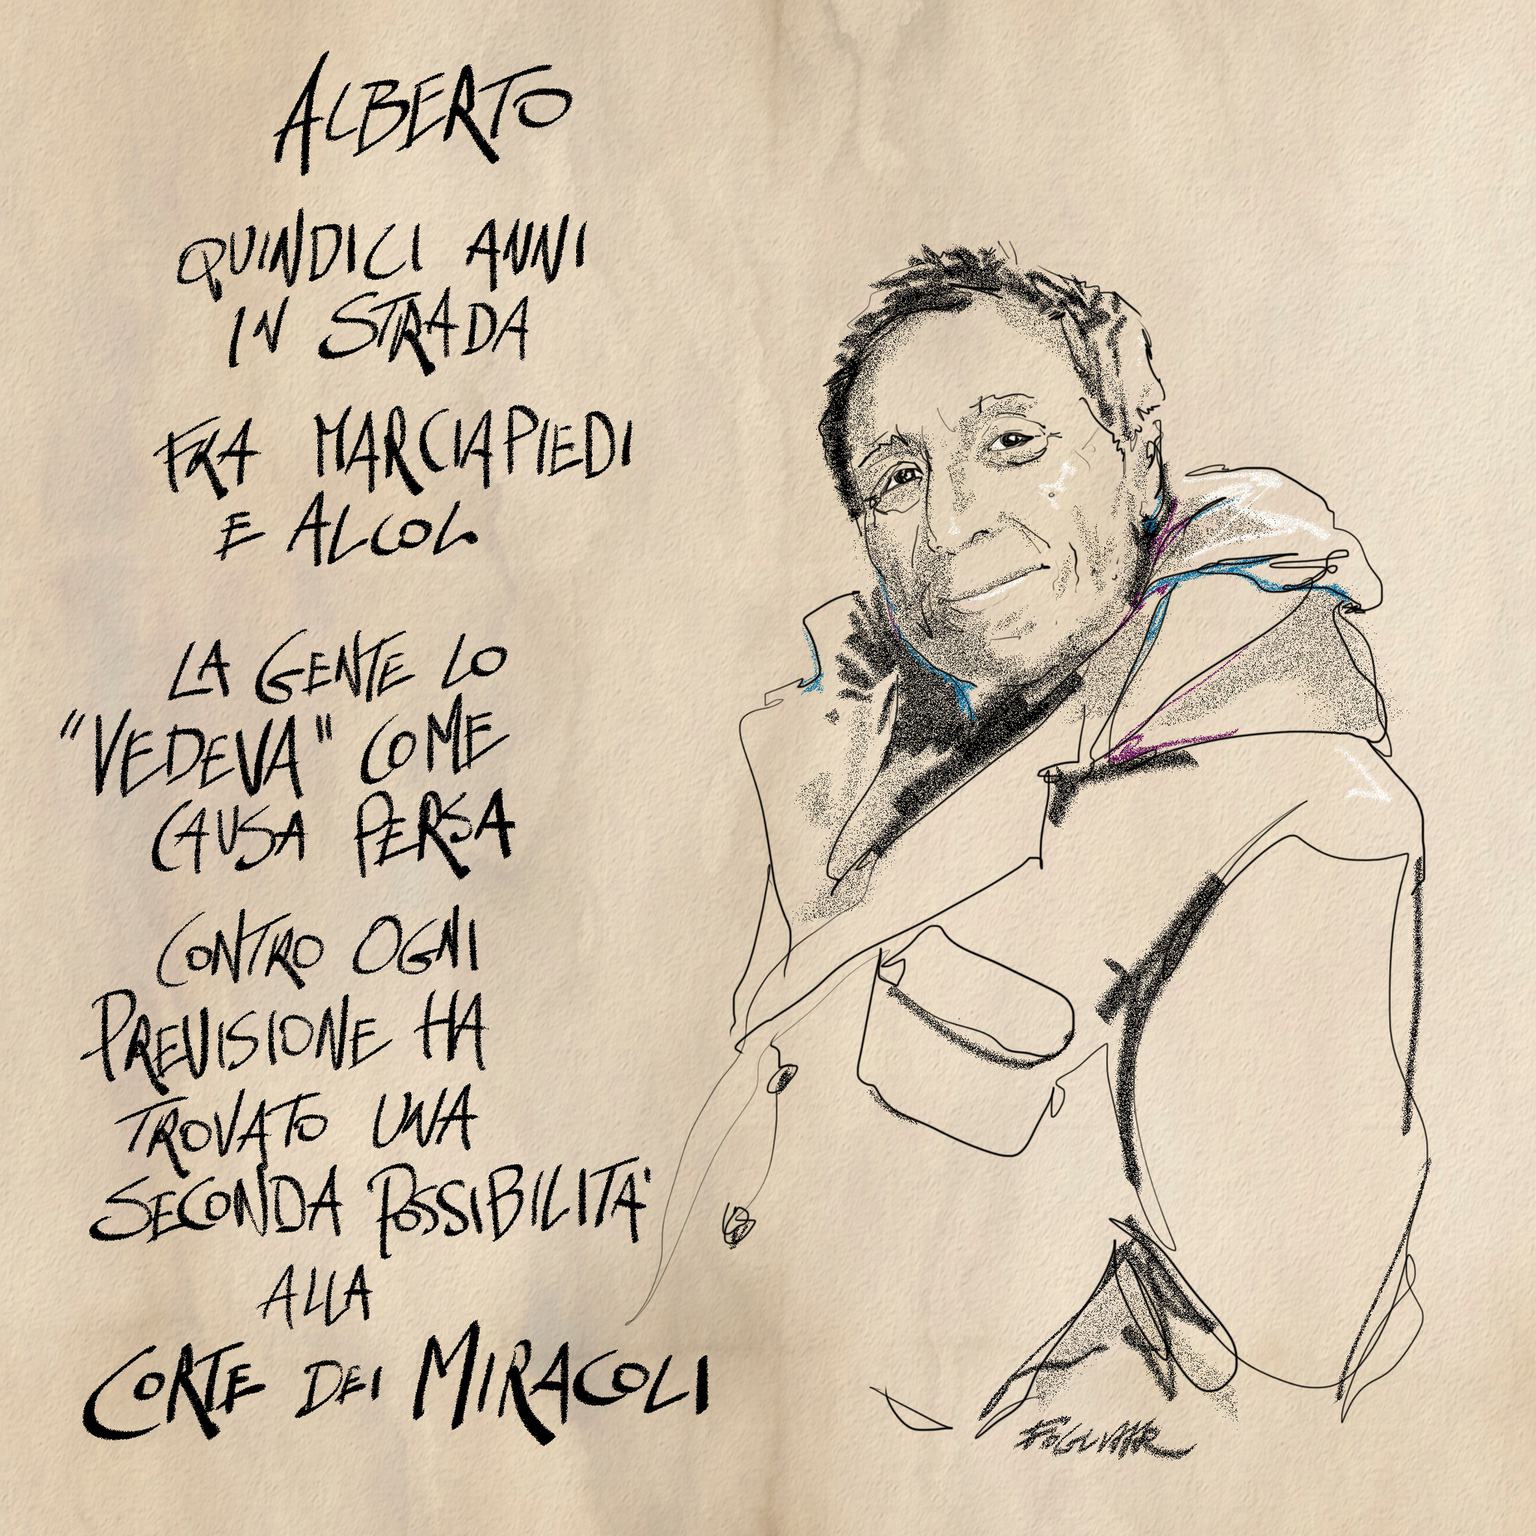 ALBERTO
QUINDICI ANNI
IN STRADA
FRA MARCIAPIEDI
E ALCOL
LA GENTE LO
"VEDEVA" COME
CAUSA PERSA
CONTRO OGNI
PREVISIONE HA
TROVATO UNA
SECONDA POSSIBILITA'
ALLA
CORTE DEI MIRACOLI